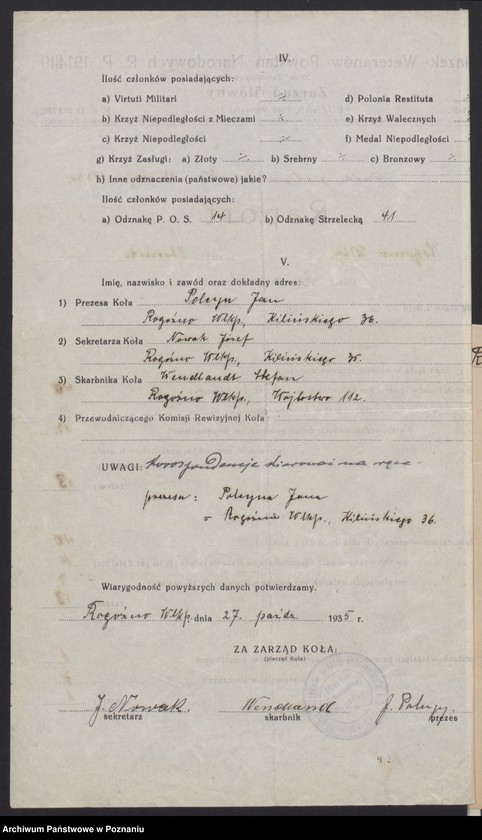 IV.
Ilość członków posiadających:
a) Virtuti Militari
d) Polonia Restituta
b) Krzyż Niepodległości z Mieczami
e) Krzyż Walecznych
c) Krzyż Niepodległości
f) Medal Niepodległości
g) Krzyż Zasługi: a) Złoty b) Srebrny c) Bronzowy
h) Inne odznaczenia (państwowe) jakie?
Ilość członków posiadających:
a) Odznakę P. O. S. 14 b) Odznakę Strzelecką 41
V.
Imię, nazwisko i zawód oraz dokładny adres:
1) Prezesa Koła Polcyn Jan
Rogoźno Wlkp., Kilińskiego 36.
2) Sekretarza Koła Nowak Józef
Rogoźno Wlkp., Kilińskiego 35.
3) Skarbnika Koła Wendlandt Stefan
Rogoźno Wlkp., Wójtostwo 112.
4) Przewodniczącego Komisji Rewizyjnej Koła:
UWAGI: Korespondencję kierować na ręce
prezesa: Polcyna Jana
w Rogoźnie Wlkp., Kilińskiego 36.
Wiarygodność powyższych danych potwierdzamy.
Rogoźno Wlkp. dnia 27. paźdz. 1935 r.
ZA ZARZĄD KOŁA:
(pieczęć Koła)
J. Nowak. Wendlandt J. Polcyn
sekretarz skarbnik prezes
Archiwum Państwowe w Poznaniu